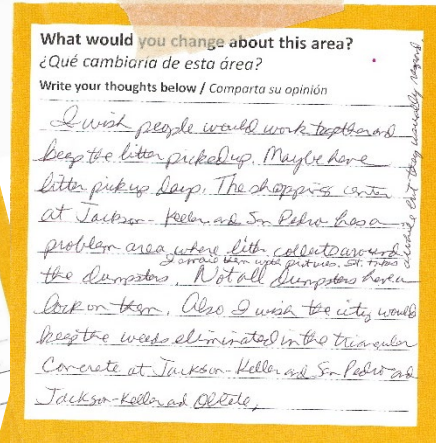 What would you change about this area?
¿Qué cambiaría de esta área?
Write your thoughts below / Comparta su opinión
I wish people would work together and
keep the litter picked up. Maybe have
litter pickup days. The shopping center
at Jackson-Keller and San Pedro has a
problem area where litter collects around
I email them with pictures. St. takes
the dumpsters. Not all dumpsters have a
lock on them. Also I wish the city would
keep the weeds eliminated in the triangular
Concrete at Jackson-Keller and San Pedro and
Jackson-Keller and
awhile but they usually respond.